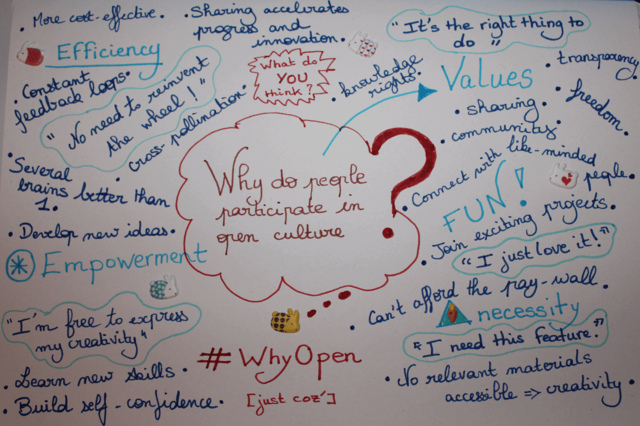 • More cost-effective.
Efficiency
• Constant
feedback loops.
"No need to reinvent
the wheel!"
• Several
brains better than
1.
• Develop new ideas.
• Sharing accelerates
progress and
innovation.
• cross-pollination.
What do
YOU
think?
• knowledge
rights.
"It's the right thing to
do"
Values
• transparency
• sharing
• freedom.
• community
Why do people
participate in
open culture
?
• Connect with like-minded
people.
FUN!
• Join exciting projects.
"I just love it!"
Empowerment
"I'm free to express
my creativity"
• Learn new skills
• Build self-confidence.
#WhyOpen
[just coz']
• Can't afford the pay-wall.
necessity
"I need this feature."
• No relevant materials
accessible => creativity.